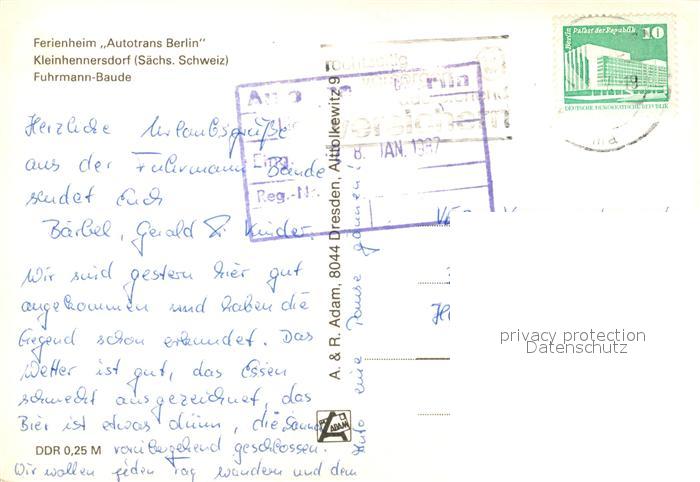 Ferienheim „Autotrans Berlin“
Kleinhennersdorf (Sächs. Schweiz)
Fuhrmann-Baude
Herzliche Urlaubsgrüße
aus der Fuhrmann Baude
sendet Euch
Bärbel, Gerald & Kinder.
Wir sind gestern hier gut
angekommen und haben die
Gegend schon erkundet. Das
Wetter ist gut, das Essen
schmeckt ausgezeichnet, das
Bier ist etwas dünn, die Sauna
vorübergehend geschlossen.
Wir wollen jeden Tag wandern und dem
Auto eine Pause gönnen!
DDR 0,25 M
A. & R. Adam, 8044 Dresden, Alttolkewitz 9
ADAM
Reg.-Nr.
8. JAN. 1987
versichern
Berlin Palast der Republik
10
DEUTSCHE DEMOKRATISCHE REPUBLIK
privacy protection
Datenschutz